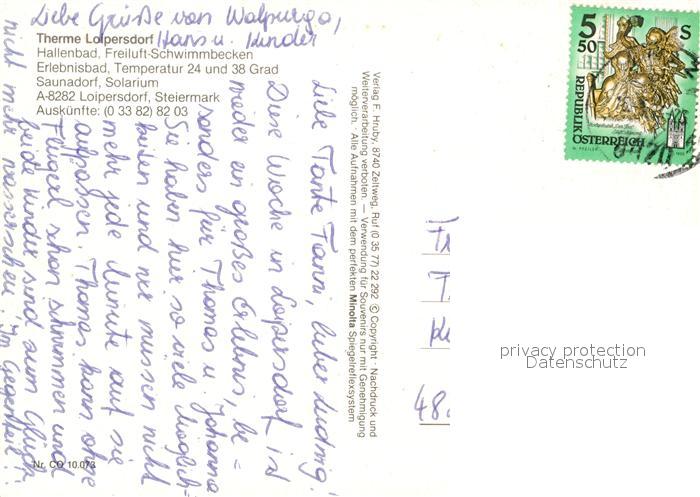 Liebe Grüße von Walpurga,
Hans u. Kinder
Therme Loipersdorf
Hallenbad, Freiluft-Schwimmbecken
Erlebnisbad, Temperatur 24 und 38 Grad
Saunadorf, Solarium
A-8282 Loipersdorf, Steiermark
Auskünfte: (0 33 82) 82 03
Liebe Tante Fanni, lieber Ludwig!
Diese Woche in Loipersdorf ist
wieder ein großes Erlebnis, be =
sonders für Thomas u. Johanna
Sie haben hier so viele Möglich-
keiten und wir müssen nicht
mehr jede Minute auf sie
aufpassen. Thomas kann ohne
Flügel schon schwimmen und
beide Kinder sind zum Glück
nicht mehr wasserscheu. Im Gegenteil!
Nr. CO 10.073
Verlag F. Hruby, 8740 Zeltweg, Ruf (0 35 77) 22 292 © Copyright · Nachdruck und
Weiterverarbeitung verboten. — Verwendung für Souvenirs nur mit Genehmigung
möglich. · Alle Aufnahmen mit dem perfekten Minolta Spiegelreflexsystem
5 50 S
REPUBLIK
ÖSTERREICH
48.
privacy protection
Datenschutz